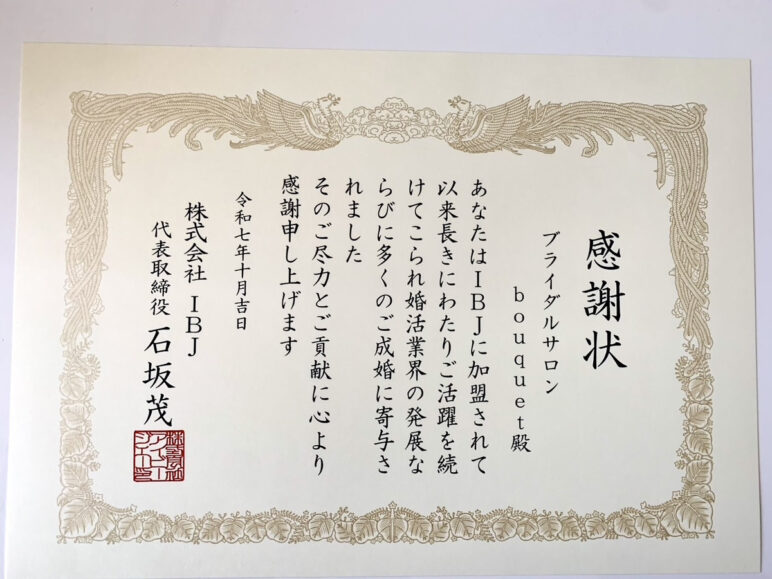 感謝状
ブライダルサロン
bouquet殿
あなたはIBJに加盟されて
以来長きにわたりご活躍を続
けてこられ婚活業界の発展な
らびに多くのご成婚に寄与さ
れました
そのご尽力とご貢献に心より
感謝申し上げます
令和七年十月吉日
株式会社 IBJ
代表取締役 石坂茂